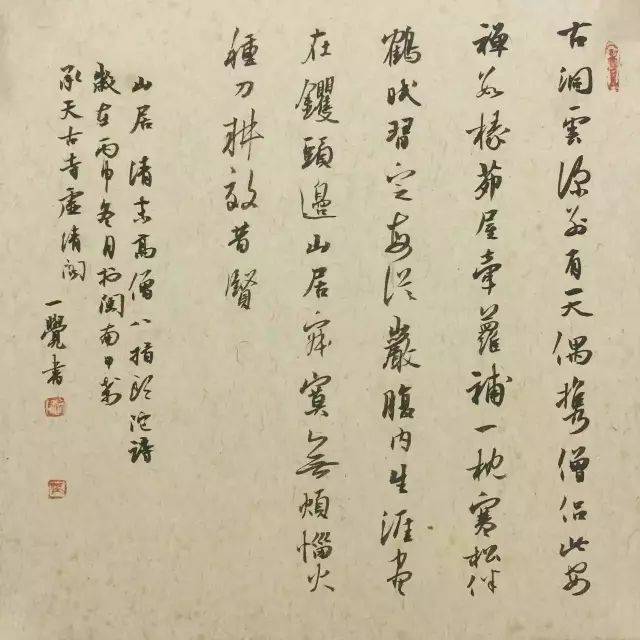 古洞雲深別有天偶攜僧侶此安
禪數椽茆屋牽蘿補一枕寒松伴
鶴眠習定每從巖腹內生涯盡
在钁頭邊山居寂寞無煩惱火
種刀耕效昔賢
山居清末高僧八指頭陀詩
歲在丙申冬月於閩南甲刹
承天古寺虛清閣 一覺書